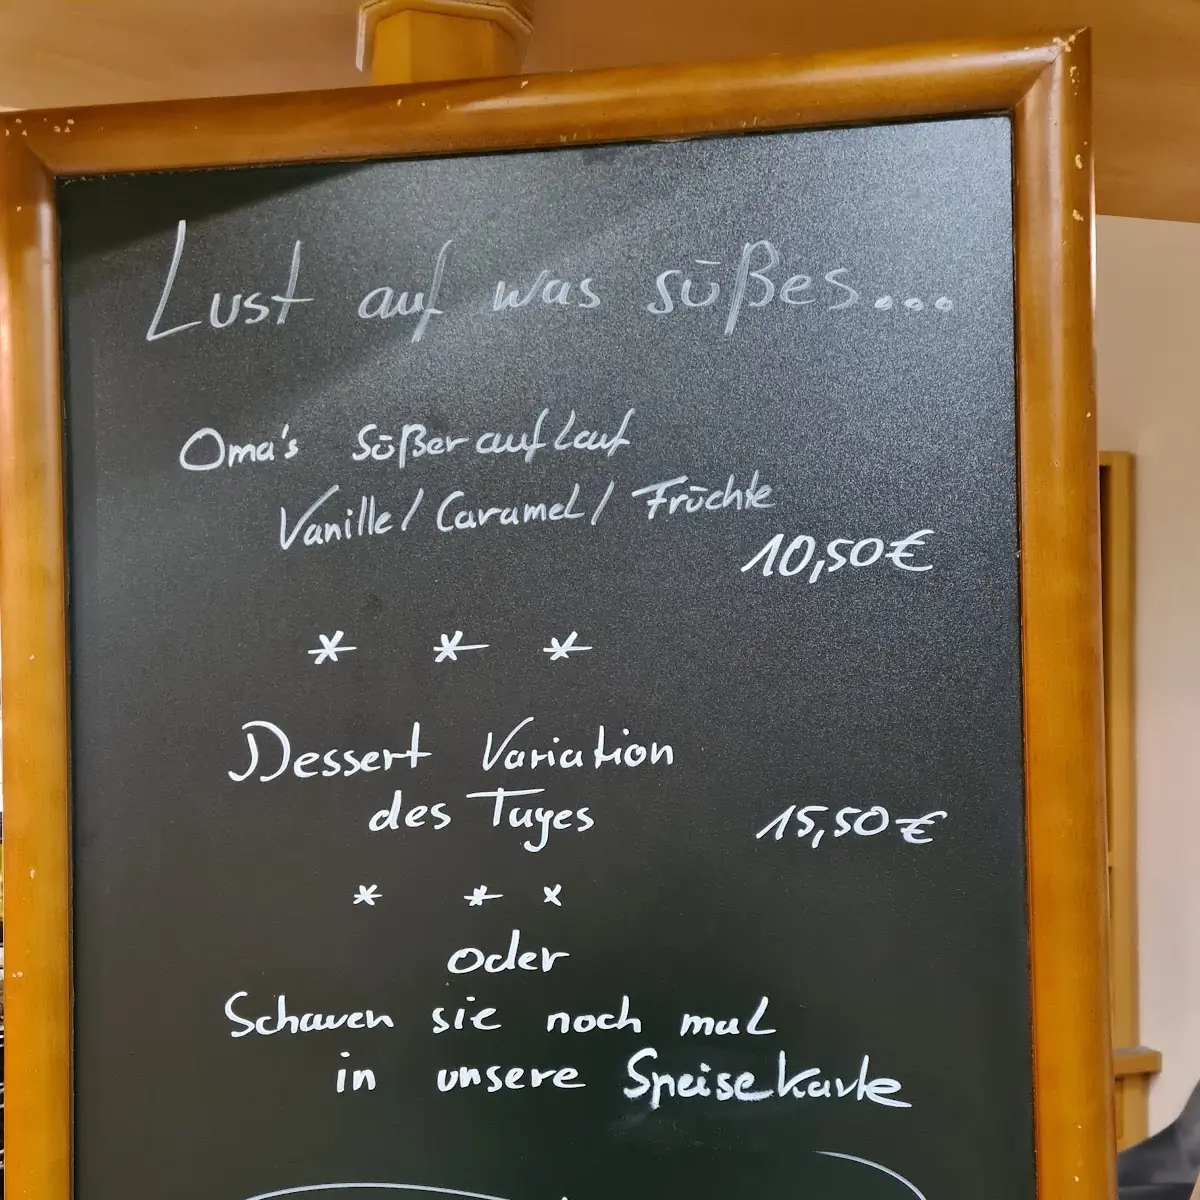 Lust auf was süßes...
Oma's Süßer auflauf
Vanille / Caramel / Früchte
10,50 €
* * *
Dessert Variation
des Tages 15,50 €
* * *
oder
Schauen sie noch mal
in unsere Speisekarte